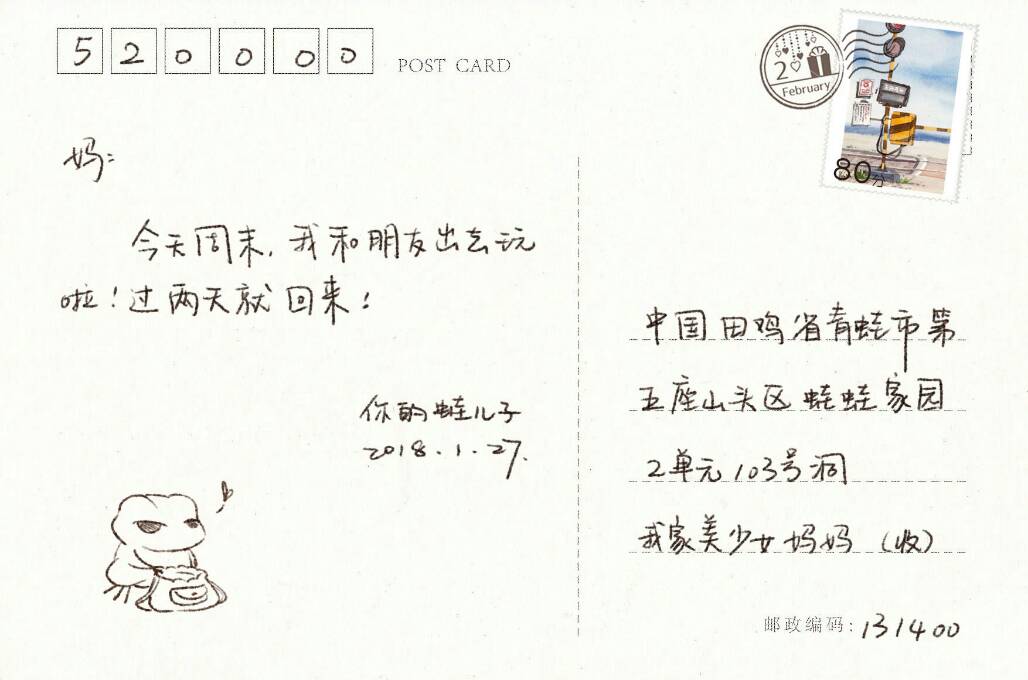 520000
POST CARD
2
February
80分
妈:
今天周末,我和朋友出去玩
啦!过两天就回来!
你的蛙儿子
2018.1.27.
中国田鸡省青蛙市第
五座山头区蛙蛙家园
2单元103号洞
我家美少女妈妈(收)
邮政编码:131400